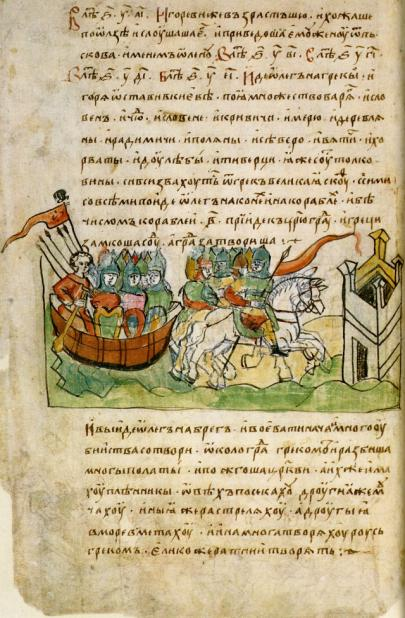 В лѣⷮ ҂ѕ҃ . у҃ . аі҃ . Игореви же възрастъшю . и хожаше
по ѡлзѣ и слоушаша еⷢ . и приведоша емоу женоу ѿ пь
скова . именемъ ѡленоу . В лѣⷮ ҂ѕ҃ . у҃ . ві҃ . В лѣⷮ ҂ѕ҃ . у҃ . гі҃ .
В лѣⷮ ҂ѕ҃ . у҃ . ді҃ . В лѣⷮ ҂ѕ҃ . у҃ . еі҃ . Иде ѡлегъ на грекы . и
горѧ ѡстави в киевѣ . поꙗ множество варѧⷢ . и сло
венъ . и чюⷣ . и словене . и кривичи . и мерю . и деревлѧ
ны . и радимичи . и полѧны . и сѣверо . и вѧтичи . и хо
рваты . и доулѣбы . и тиверци . ꙗже соуⷮ толко
вины . си вси звахоуть ѿ грекъ великаѧ скоуⷴ . с сими
со всѣми поиде ѡлегъ на конех и на кораблѣ . и бѣ
числомъ кораблей . в҃ . прїиде к црюграⷣ . и греци
замкоша соуⷣ . а граⷣ затвориша :~
И выиде ѡлегъ на брегъ . и воевати нача . и много оу
бийства сотвори . ѡколо граⷣ грекомъ . и разбиша
многы полаты . и пожгоша цркви . а иⷯже има
хоу плѣнникы . ѡвѣхъ посекахоⷹ . дроугиа же мⷱ
чахоу . иныѧ же растрелѧхоу . а дроугыѧ
в море вметахоу . и ина многа творѧхоу роусь
грекомъ . елико же ратнии творѧть :~